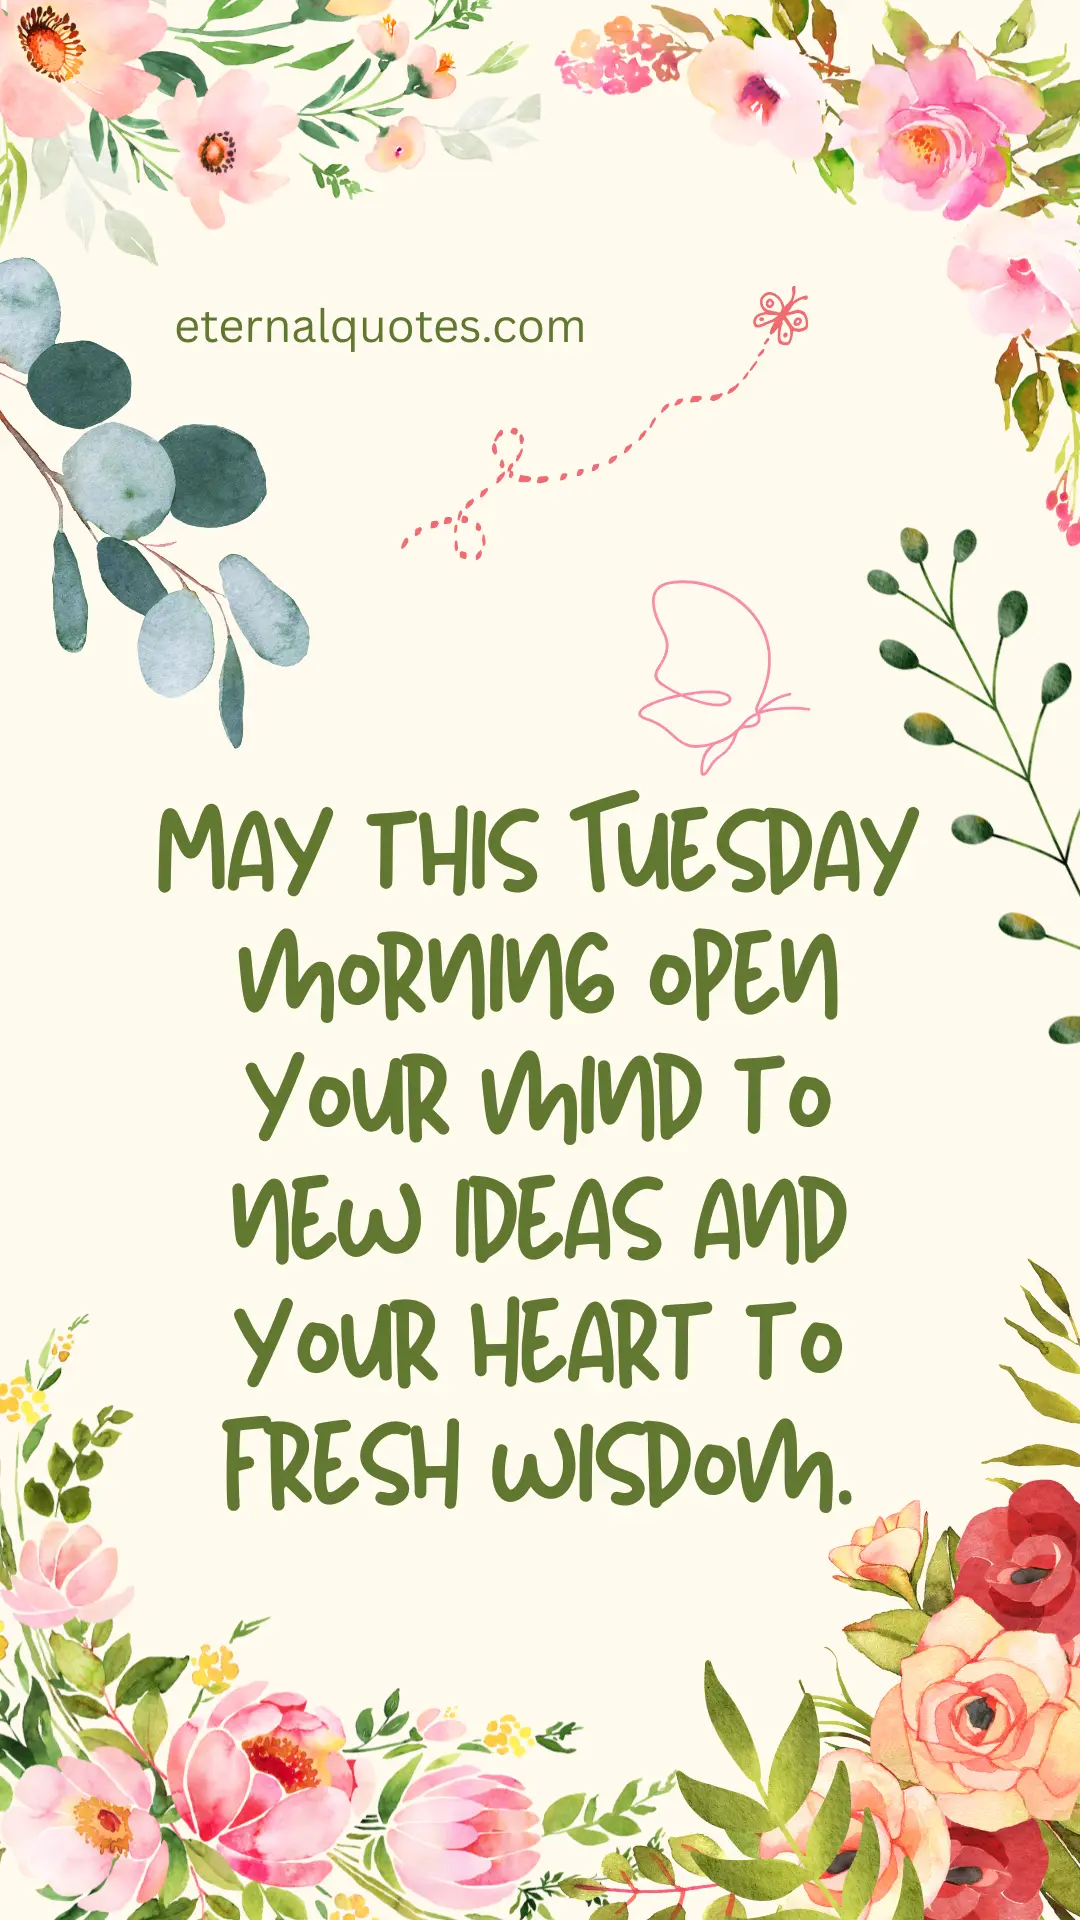 eternalquotes.com
May this Tuesday
morning open
your mind to
new ideas and
your heart to
fresh wisdom.